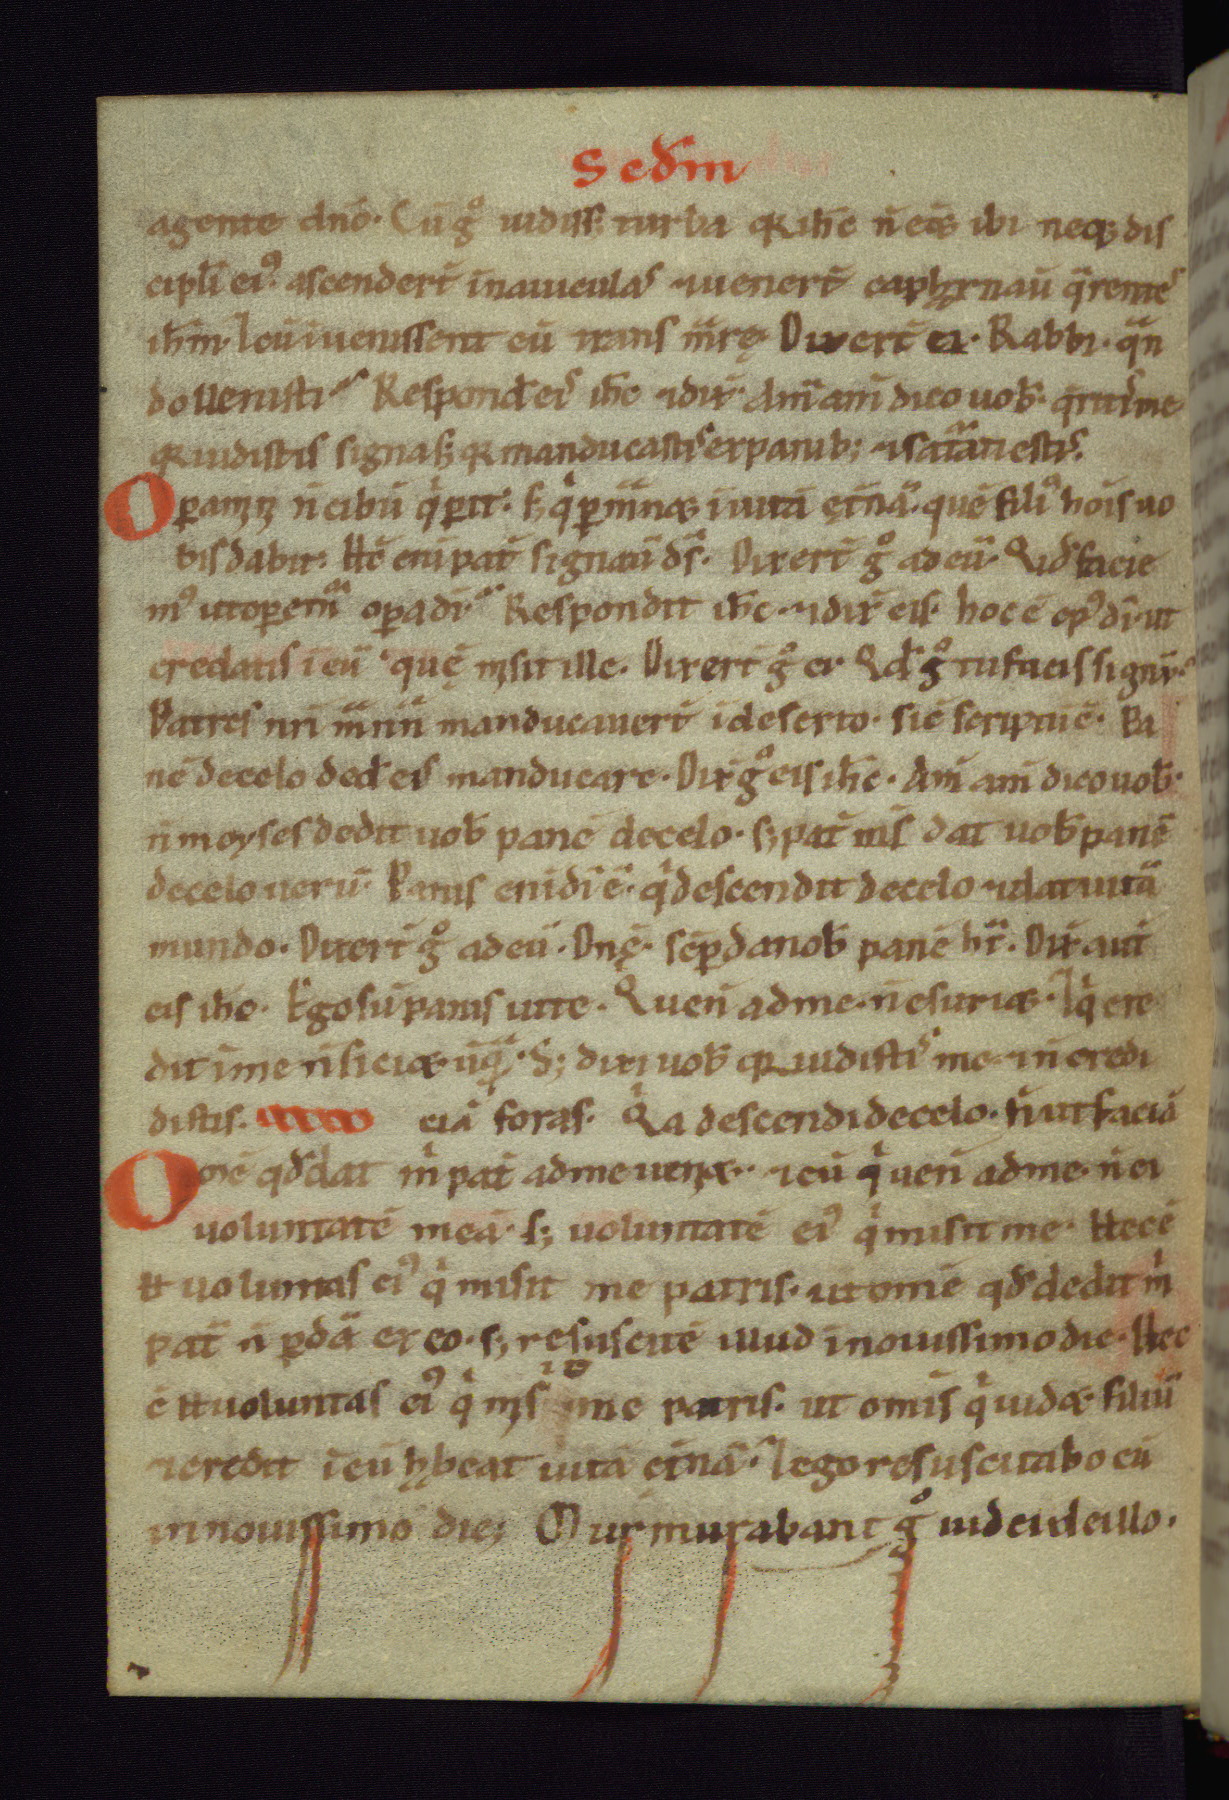 Secd̄m
agente dn̄o. Cū gͦ uidiss; turba q̄ ih̄c n̄ eēt ibi neq; dis
cipl̄i ei⁹. ascender̄t in nauiculas ⁊ uener̄t caphrnaū q̄rentes
ih̄m. ⁊ cū īuenissent eū trans mͣrę. Dixer̄t ei. Rabbi. qͣn
do uenisti. Respond̄ eis ih̄c ⁊ dix̄. Am̄ am̄ dico uob̄. q̄ritis me
q̄ uidistis signa. s; q̄ manducastis ex panib; ⁊ saturati estis.
Operamī n̄ cibū qͥ perit. s; qͥ permanet ī uitā et̄nā. quē fili⁹ hōis uo
bis dabit. Hc̄ eni pat̄ signauī d̄s. Dixer̄t gͦ ad eū. Qid facie
m⁹ ut operemͬ opa dī. Respondit ih̄c ⁊ dix̄ eis. hoc ē op⁹ dī. ut
credatis ī eū quę misit ille. Dixer̄t gͦ ei. Qd̄ gͦ tu facis signū.
Patres nr̄i manna manducauer̄t ī deserto. sic̄ scriptū ē. Pa
nē de celo ded̄ eis manducare. Dix̄ gͦ eis ih̄c. Am̄ am̄ dico uob̄.
n̄ moyses dedit uob̄ panē de celo. s; pat̄ m̄s dat uob̄ panē
de celo uerū. Panis eni dī ē. qͥ descendit de celo ⁊ dat uitā
mundo. Dixer̄t gͦ ad eū. Dn̄ę. sēp da nob̄ panē hc̄. Dix̄ aut̄
eis ih̄c. Ego sū panis uite. Q uen̄ ad me. n̄ esuriet. ⁊ qͥ cre
dit ī me n̄ siciet ūqͣ. S; dixi uob̄ q̄ uidistis me ⁊ n̄ credi
distis. ciā foras. Qͥa descendi de celo. n̄ ut faciā
Omē qd̄ dat mͥ pat̄ ad me ueniet. ⁊ eū qͥ uen̄ ad me. n̄ ei
uoluntatē meā. s; uoluntatē ei⁹ qͥ misit me. Hec ē
tt uoluntas ei⁹ qͥ misit me patris. ut omē qd̄ dedit mͥ
pat̄ n̄ perdā ex eo. s; resuscitē illud ī nouissimo die. Hec
ē tt uoluntas ei⁹ qͥ misit me patris. ut omīs qͥ uidet filiū
⁊ credit ī eū hbeat uitā et̄nā. ⁊ ego resuscitabo eū
in nouissimo die; Murmurabant gͦ iudei de illo.